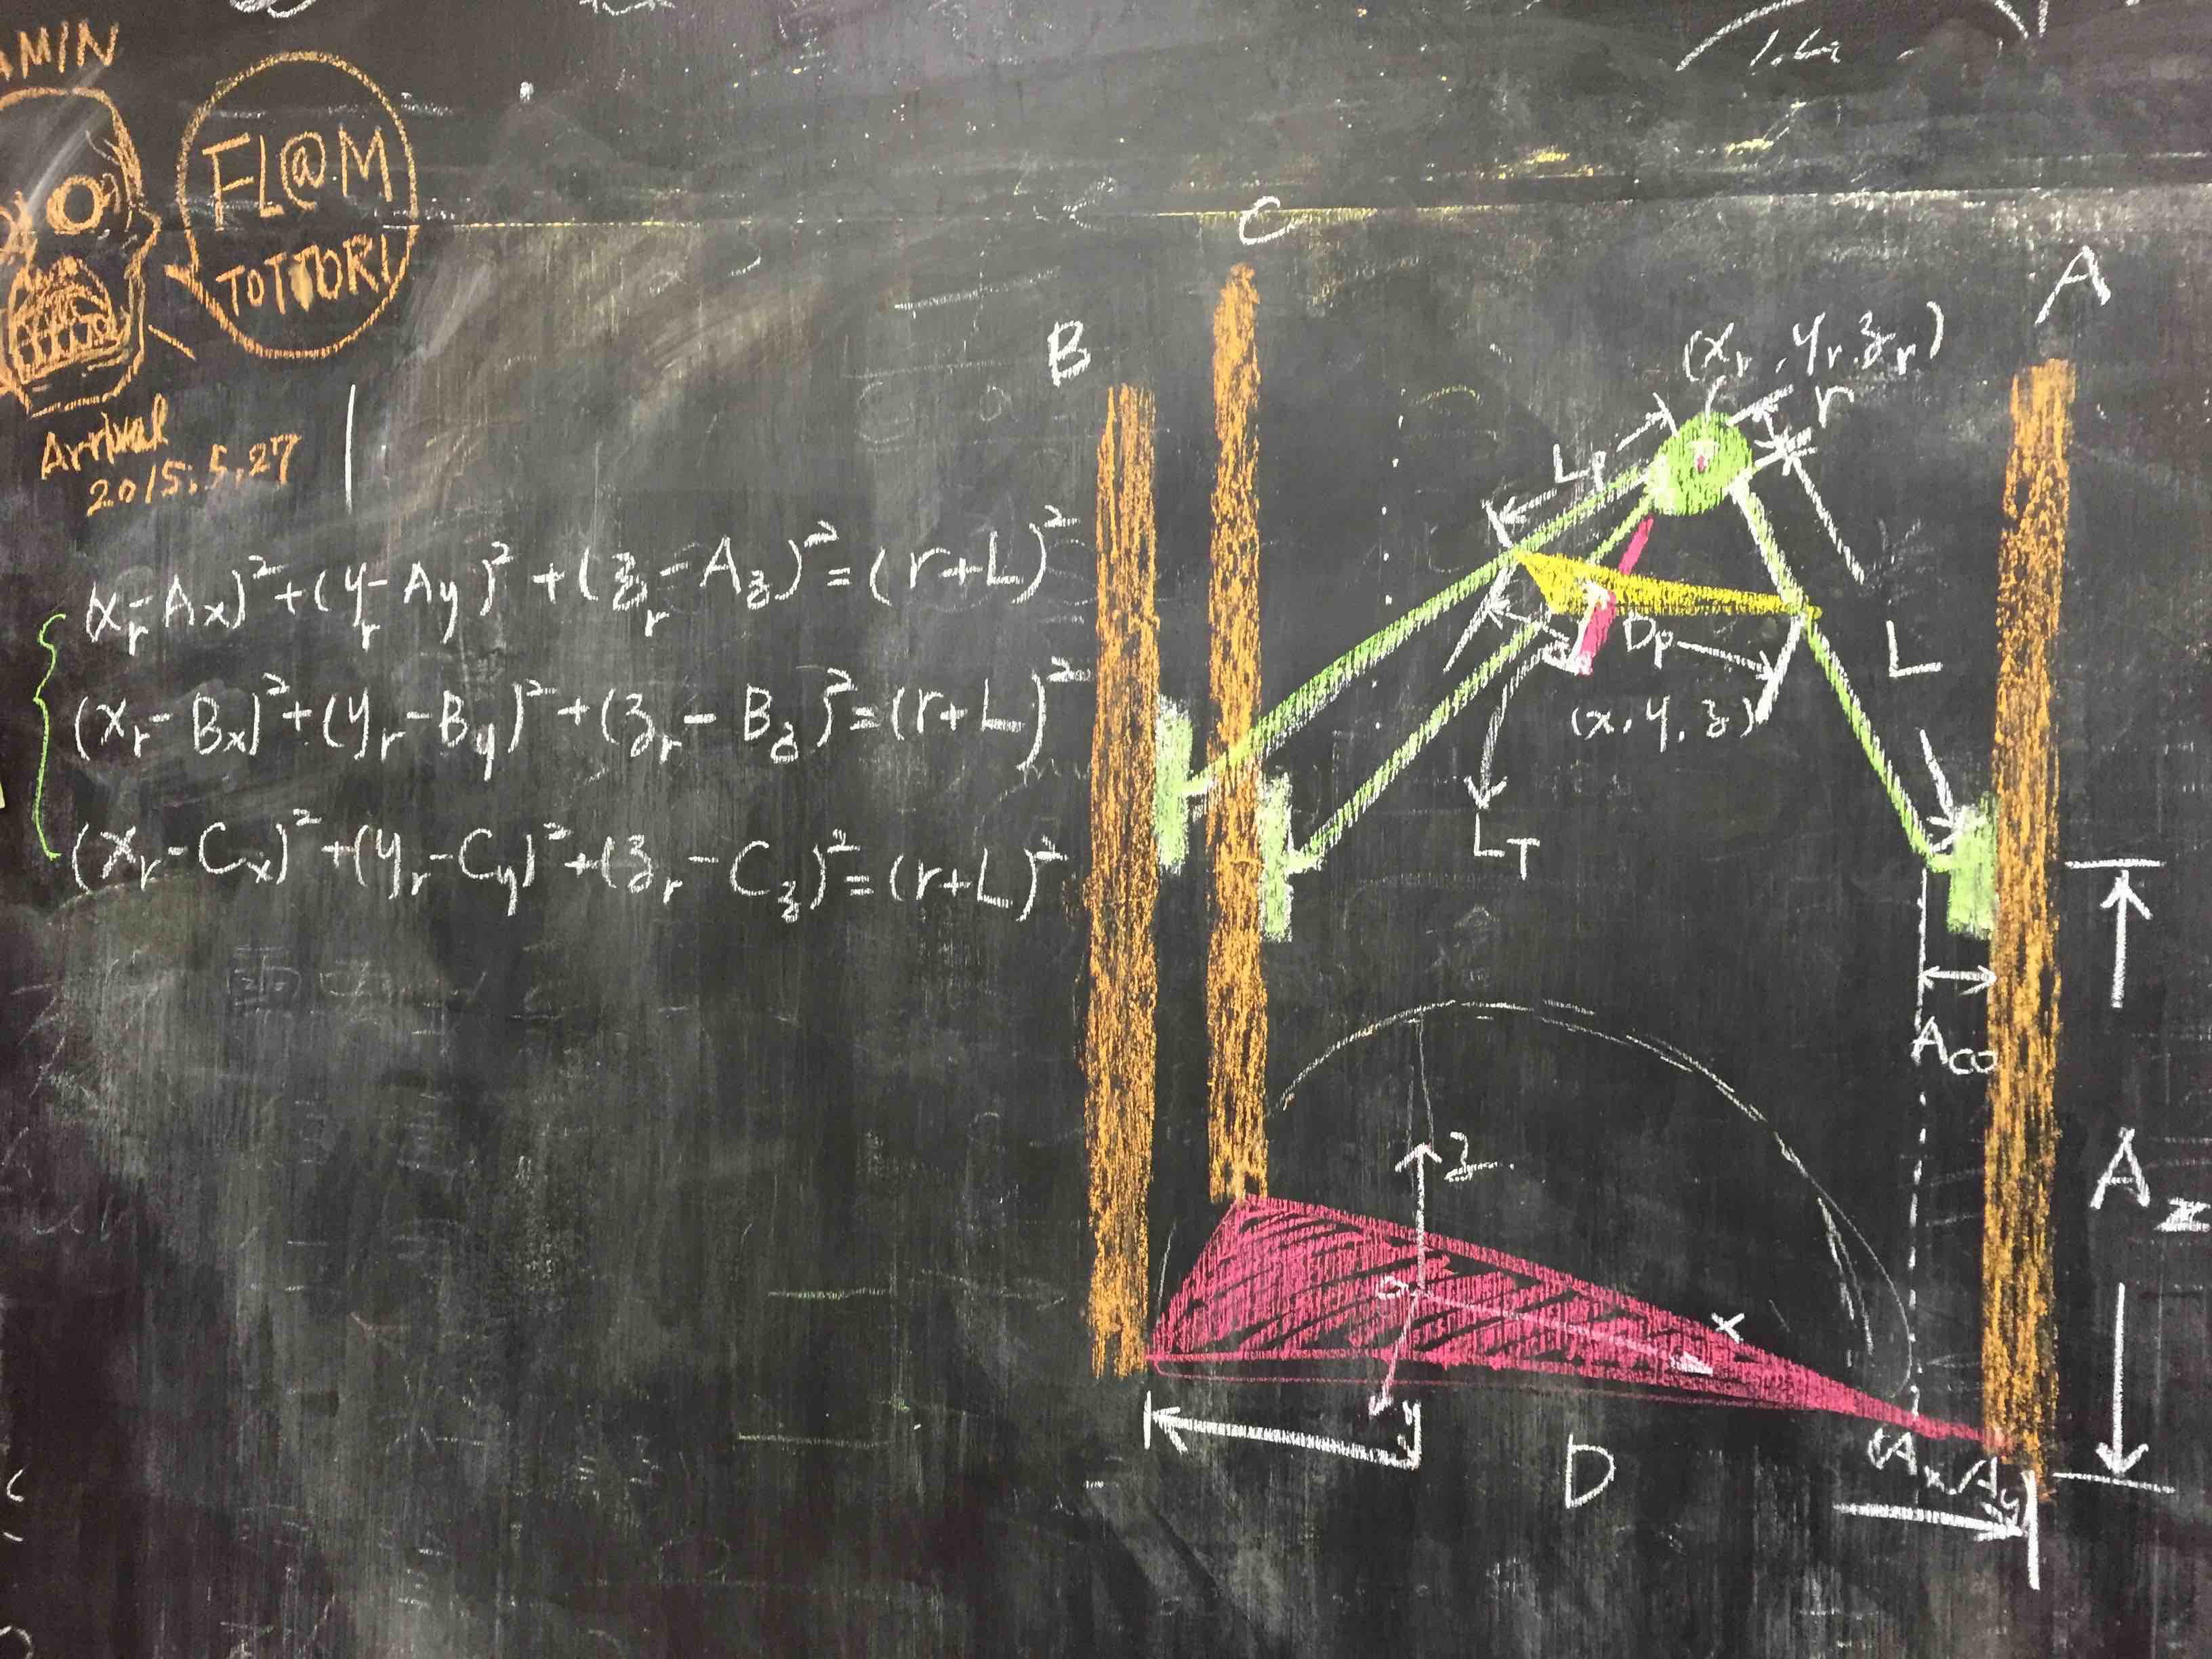 AMIN
FL@M
TOTTORI
Arrival
2015.5.27
(xr-Ax)²+(yr-Ay)²+(zr-Az)²=(r+L)²
(xr-Bx)²+(yr-By)²+(zr-Bz)²=(r+L)²
(xr-Cx)²+(yr-Cy)²+(zr-Cz)²=(r+L)²
C
B
A
(xr, yr, zr)
r
Lp
L
Dp
(x, y, z)
LT
Aco
Az
z
o
x
y
D
(Ax, Ay